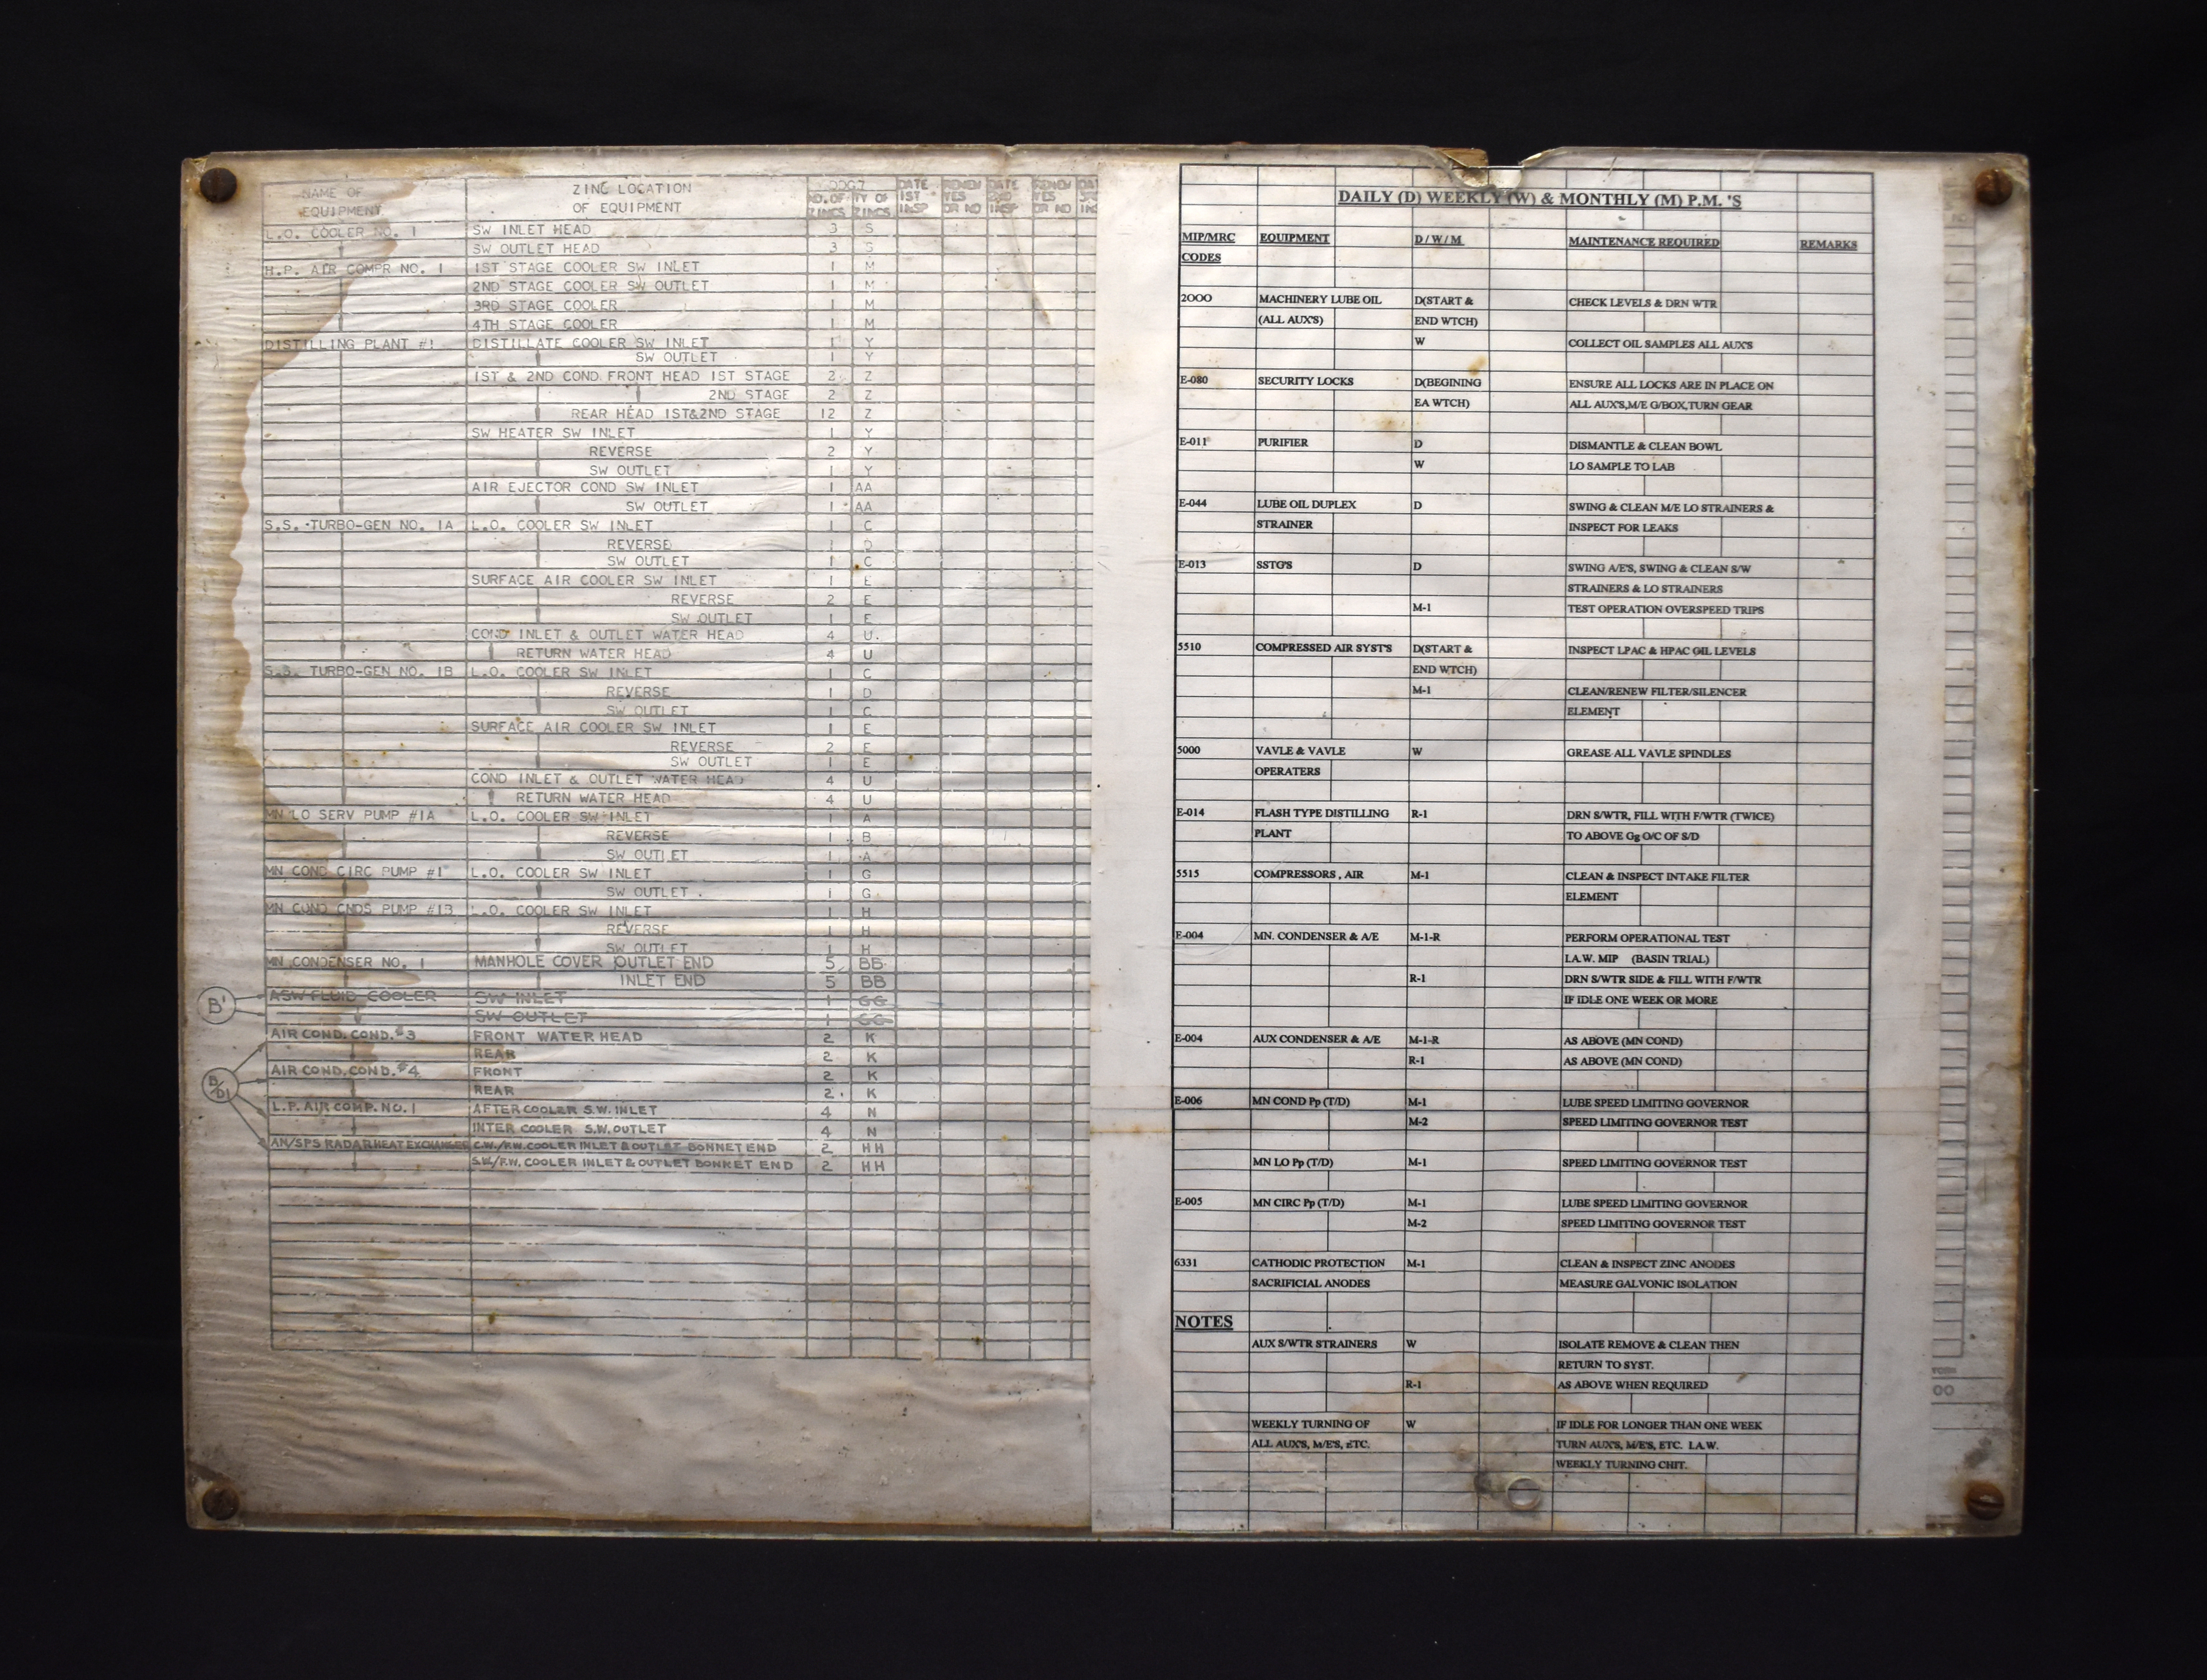 NAME OF EQUIPMENT ZINC LOCATION OF EQUIPMENT NO. OF ZINCS TY OF ZINCS DATE 1ST INSP RENEW YES OR NO DATE 2ND INSP RENEW YES OR NO
L.O. COOLER NO. 1 SW INLET HEAD 3 S
SW OUTLET HEAD 3 S
H.P. AIR COMPR NO. 1 1ST STAGE COOLER SW INLET 1 M
2ND STAGE COOLER SW OUTLET 1 M
3RD STAGE COOLER 1 M
4TH STAGE COOLER 1 M
DISTILLING PLANT #1 DISTILLATE COOLER SW INLET 1 Y
SW OUTLET 1 Y
1ST & 2ND COND. FRONT HEAD 1ST STAGE 2 Z
2ND STAGE 2 Z
REAR HEAD 1ST&2ND STAGE 12 Z
SW HEATER SW INLET 1 Y
REVERSE 2 Y
SW OUTLET 1 Y
AIR EJECTOR COND SW INLET 1 AA
SW OUTLET 1 AA
S.S. TURBO-GEN NO. 1A L.O. COOLER SW INLET 1 C
REVERSE 1 D
SW OUTLET 1 C
SURFACE AIR COOLER SW INLET 1 E
REVERSE 2 E
SW OUTLET 1 E
COND INLET & OUTLET WATER HEAD 4 U
RETURN WATER HEAD 4 U
S.S. TURBO-GEN NO. 1B L.O. COOLER SW INLET 1 C
REVERSE 1 D
SW OUTLET 1 C
SURFACE AIR COOLER SW INLET 1 E
REVERSE 2 E
SW OUTLET 1 E
COND INLET & OUTLET WATER HEAD 4 U
RETURN WATER HEAD 4 U
MN LO SERV PUMP #1A L.O. COOLER SW INLET 1 A
REVERSE 1 B
SW OUTLET 1 A
MN COND CIRC PUMP #1 L.O. COOLER SW INLET 1 G
SW OUTLET 1 G
MN COND CNDS PUMP #1B L.O. COOLER SW INLET 1 H
REVERSE 1 H
SW OUTLET 1 H
MN CONDENSER NO. 1 MANHOLE COVER OUTLET END 5 BB
INLET END 5 BB
B' ASW FLUID COOLER SW INLET 1 GG
SW OUTLET 1 GG
AIR COND. COND. #3 FRONT WATER HEAD 2 K
REAR 2 K
B/D1 AIR COND. COND. #4 FRONT 2 K
REAR 2 K
L.P. AIR COMP. NO. 1 AFTER COOLER S.W. INLET 4 N
INTER COOLER S.W. OUTLET 4 N
AN/SPS RADAR HEAT EXCHANGER C.W./F.W. COOLER INLET & OUTLET BONNET END 2 HH
S.W./F.W. COOLER INLET & OUTLET BONKET END 2 HH
DAILY (D) WEEKLY (W) & MONTHLY (M) P.M. 'S
MIP/MRC EQUIPMENT D/W/M MAINTENANCE REQUIRED REMARKS
CODES
2OOO MACHINERY LUBE OIL D(START & CHECK LEVELS & DRN WTR
(ALL AUX'S) END WTCH)
W COLLECT OIL SAMPLES ALL AUX'S
E-080 SECURITY LOCKS D(BEGINING ENSURE ALL LOCKS ARE IN PLACE ON
EA WTCH) ALL AUX'S,M/E G/BOX,TURN GEAR
E-011 PURIFIER D DISMANTLE & CLEAN BOWL
W LO SAMPLE TO LAB
E-044 LUBE OIL DUPLEX D SWING & CLEAN M/E LO STRAINERS &
STRAINER INSPECT FOR LEAKS
E-013 SSTG'S D SWING A/E'S, SWING & CLEAN S/W
STRAINERS & LO STRAINERS
M-1 TEST OPERATION OVERSPEED TRIPS
5510 COMPRESSED AIR SYST'S D(START & INSPECT LPAC & HPAC OIL LEVELS
END WTCH)
M-1 CLEAN/RENEW FILTER/SILENCER
ELEMENT
5000 VAVLE & VAVLE W GREASE ALL VAVLE SPINDLES
OPERATERS
E-014 FLASH TYPE DISTILLING R-1 DRN S/WTR, FILL WITH F/WTR (TWICE)
PLANT TO ABOVE Gg O/C OF S/D
5515 COMPRESSORS , AIR M-1 CLEAN & INSPECT INTAKE FILTER
ELEMENT
E-004 MN. CONDENSER & A/E M-1-R PERFORM OPERATIONAL TEST
I.A.W. MIP (BASIN TRIAL)
R-1 DRN S/WTR SIDE & FILL WITH F/WTR
IF IDLE ONE WEEK OR MORE
E-004 AUX CONDENSER & A/E M-1-R AS ABOVE (MN COND)
R-1 AS ABOVE (MN COND)
E-006 MN COND Pp (T/D) M-1 LUBE SPEED LIMITING GOVERNOR
M-2 SPEED LIMITING GOVERNOR TEST
MN LO Pp (T/D) M-1 SPEED LIMITING GOVERNOR TEST
E-005 MN CIRC Pp (T/D) M-1 LUBE SPEED LIMITING GOVERNOR
M-2 SPEED LIMITING GOVERNOR TEST
6331 CATHODIC PROTECTION M-1 CLEAN & INSPECT ZINC ANODES
SACRIFICIAL ANODES MEASURE GALVONIC ISOLATION
NOTES
AUX S/WTR STRAINERS W ISOLATE REMOVE & CLEAN THEN
RETURN TO SYST.
R-1 AS ABOVE WHEN REQUIRED
WEEKLY TURNING OF W IF IDLE FOR LONGER THAN ONE WEEK
ALL AUX'S, M/E'S, ETC. TURN AUX'S, M/E'S, ETC. I.A.W.
WEEKLY TURNING CHIT.